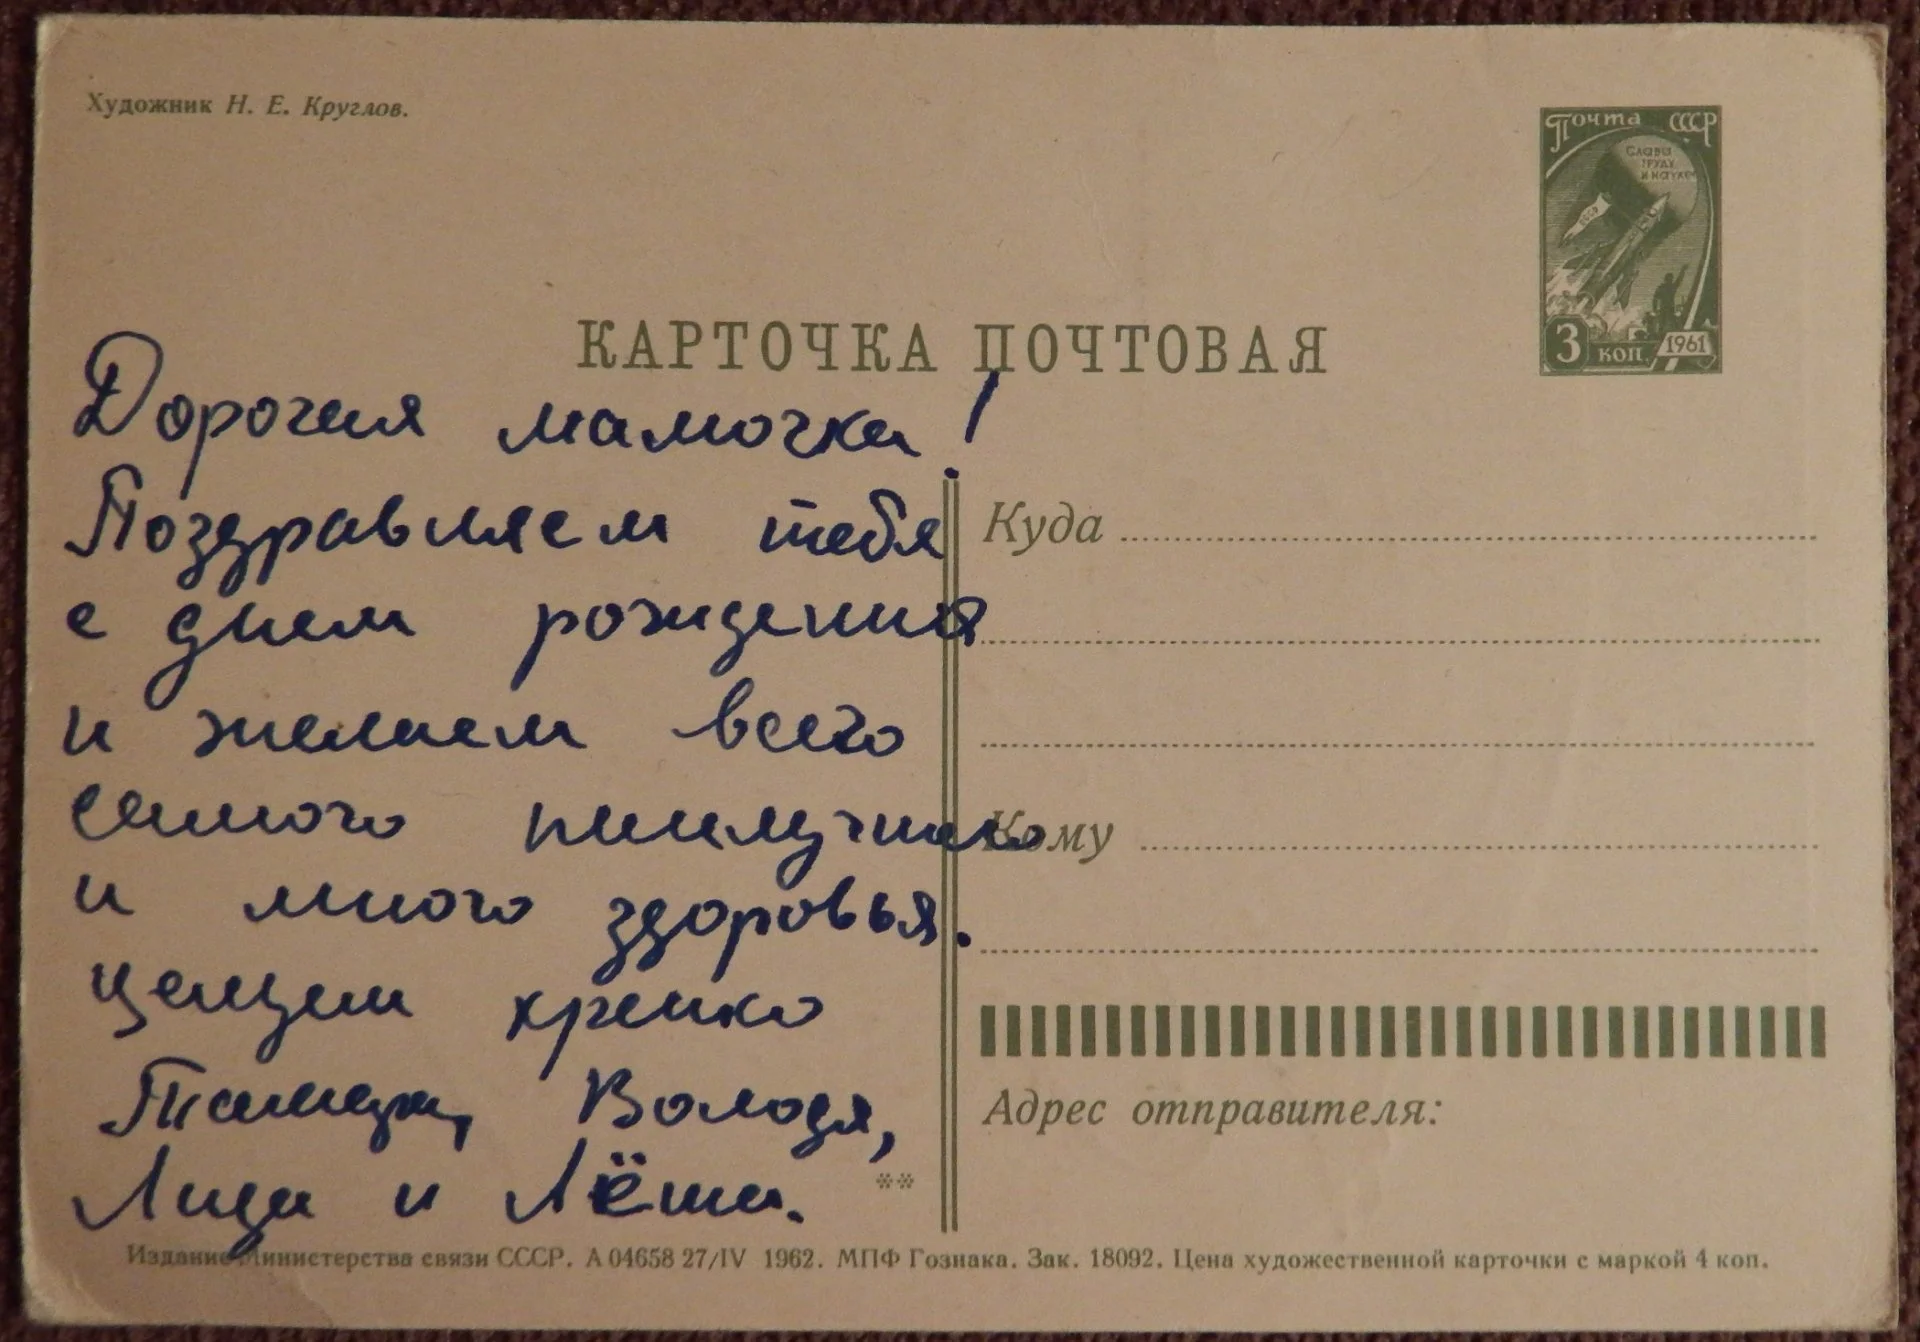 Художник Н. Е. Круглов.
Почта СССР
СЛАВА
ТРУДУ
И НАУКЕ
СССР
3 КОП. 1961
КАРТОЧКА ПОЧТОВАЯ
Дорогая мамочка!
Поздравляем тебя
с днем рождения
и желаем всего
самого наилучшего
и много здоровья.
Целуем крепко
Володя,
Лида и Лёша.
Куда
Кому
Адрес отправителя:
**
Издание Министерства связи СССР. А 04658 27/IV 1962. МПФ Гознака. Зак. 18092. Цена художественной карточки с маркой 4 коп.